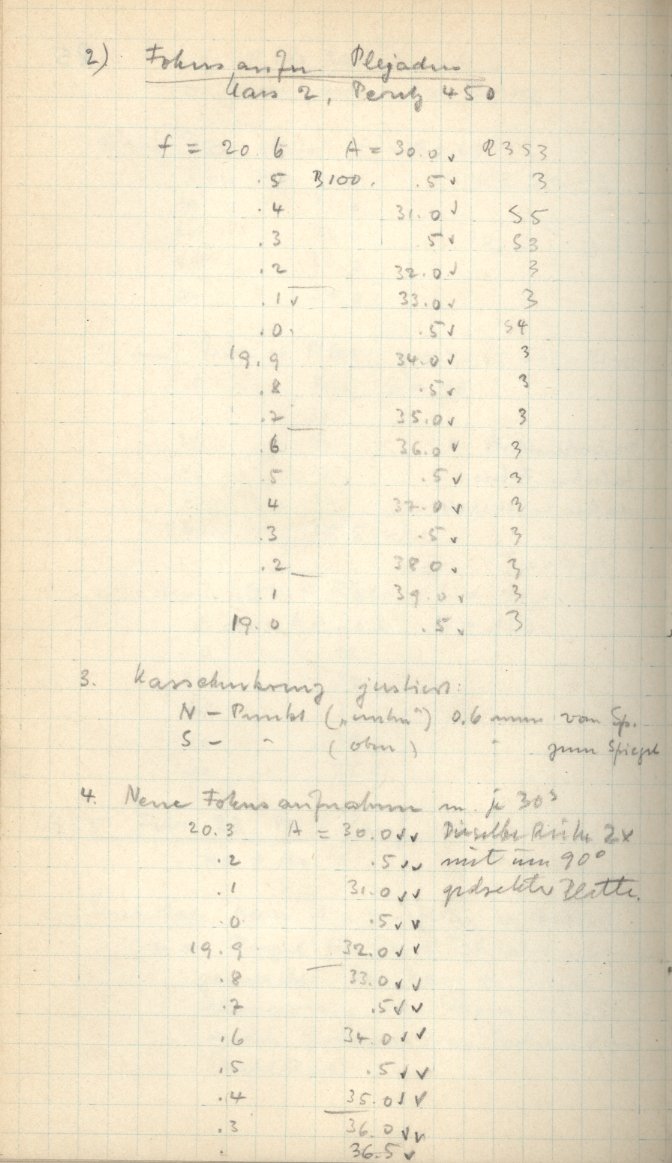 2) Fokusaufn Plejaden
Kass 2, Perutz 450
f = 20.6 A = 30.0✓ 3
.5 B100. .5✓ 3
.4 31.0✓ S5
.3 .5✓ S3
.2 32.0✓ 3
.1✓ 33.0✓ 3
.0. .5✓ S4
19.9 34.0✓ 3
.8 .5✓ 3
.7 35.0✓ 3
.6 36.0✓ 3
.5 .5✓ 3
4 37.0✓ 3
.3 .5✓ 3
.2 38.0✓ 3
.1 39.0✓ 3
19.0 .5✓ 3
3. Kassettenkranz justiert:
N - Punkt („unten") 0.6 mm vom Sp.
S - " (oben) " zum Spiegel
4. Neue Fokusaufnahmen m. je 30s
20.3 A = 30.0✓✓ Dieselbe Reihe 2x
.2 .5✓✓ mit um 90°
.1 31.0✓✓ gedrehter Platte.
.0 .5✓✓
19.9 32.0✓✓
.8 33.0✓✓
.7 .5✓✓
.6 34.0✓✓
.5 .5✓✓
.4 35.0✓✓
.3 36.0✓✓
. 36.5✓